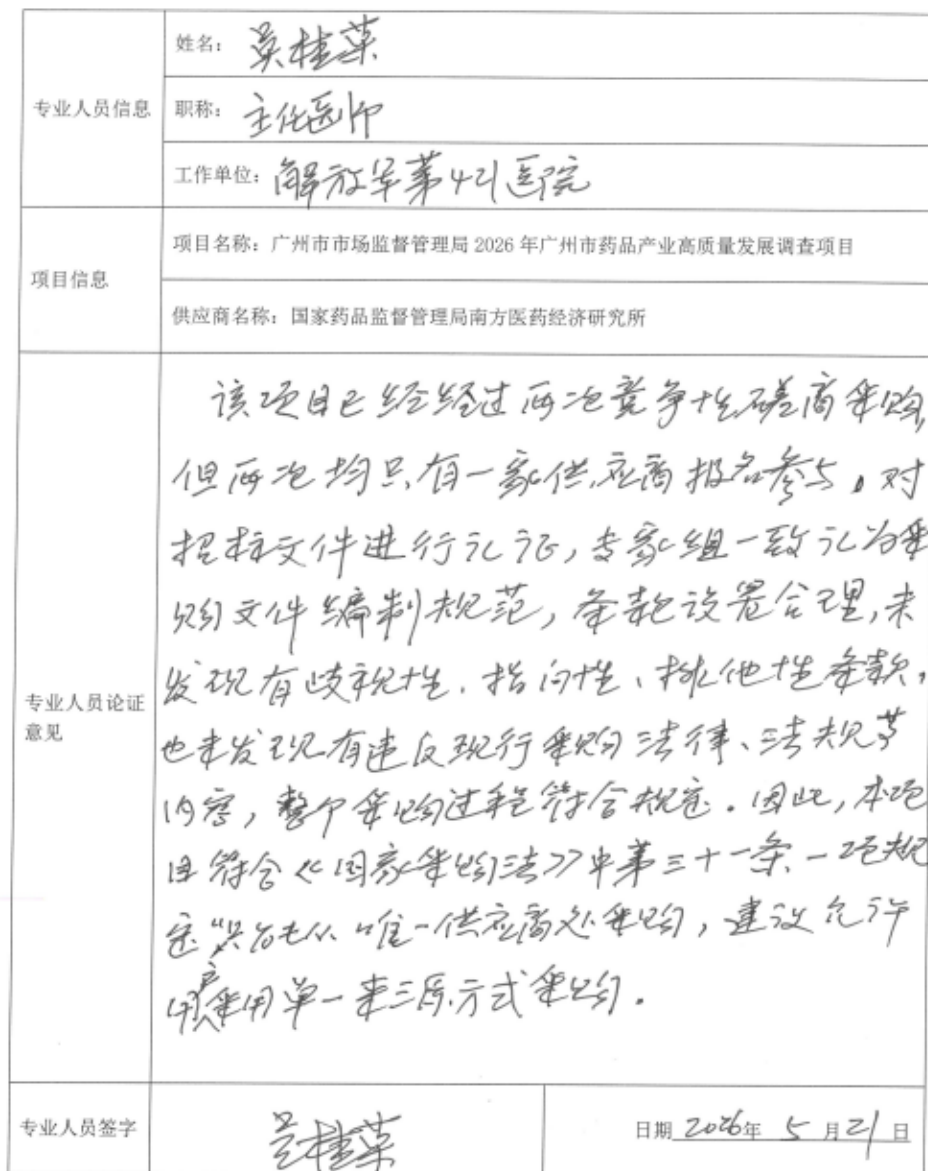 专业人员信息
姓名：吴桂荣
职称：主任医师
工作单位：解放军第421医院
项目信息
项目名称：广州市市场监督管理局 2026 年广州市药品产业高质量发展调查项目
供应商名称：国家药品监督管理局南方医药经济研究所
专业人员论证
意见
该项目已经经过两次竞争性磋商采购,
但两次均只有一家供应商报名参与。对
招标文件进行论证,专家组一致认为采
购文件编制规范,条款设置合理,未
发现有歧视性、指向性、排他性条款,
也未发现有违反现行采购法律、法规等
内容,整个采购过程符合规定。因此,本项
目符合《国家采购法》中第三十一条一项规
定"只能从唯一供应商处采购,建议允许
采用单一来源方式采购。
专业人员签字
吴桂荣
日期 2026年 5 月 21 日